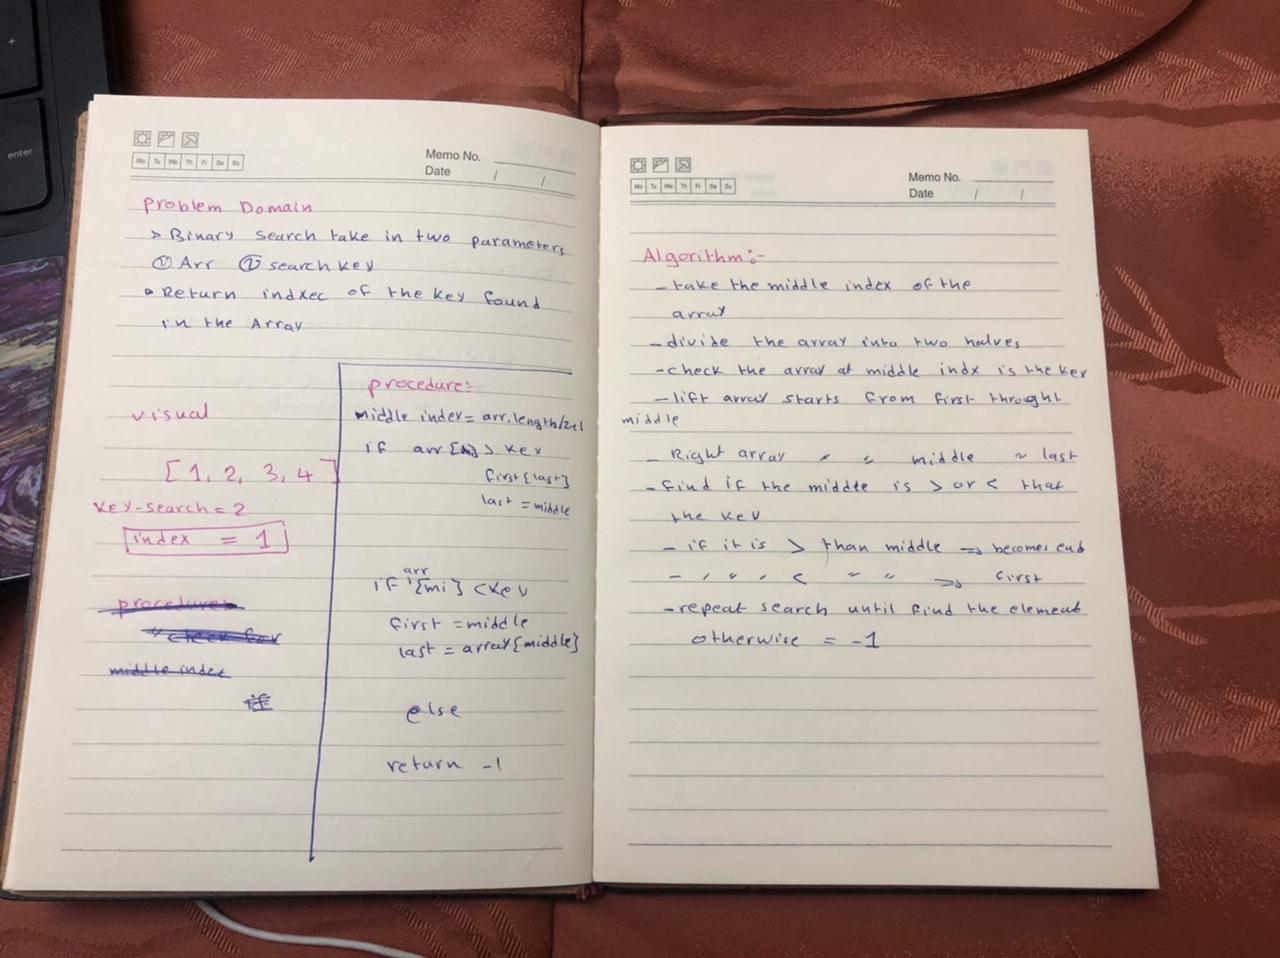 enter
Mo Tu We Th Fr Sa Su
Memo No.
Date / /
problem Domain
> Binary search take in two parameters
① Arr ② search key
Return indxec of the key found
in the Array
visual
[ 1, 2, 3, 4 ]
key-search = 2
index = 1
procedure
check for
middle index
if
procedure:-
middle index = arr.length/2+1
if arr > key
first{last}
last = middle
arr
if {mi} < key
first = middle
last = array{middle}
else
return -1
Mo Tu We Th Fr Sa Su
Memo No.
Date / /
Algorithm:-
- take the middle index of the
array
- divide the array into two halves
- check the array at middle indx is the key
- lift array starts from first throught
middle
- Right array " " middle ~ last
- find if the middle is > or < that
the key
- if it is > than middle => becomes end
- " " " < " " => first
- repeat search until find the element
otherwise = -1